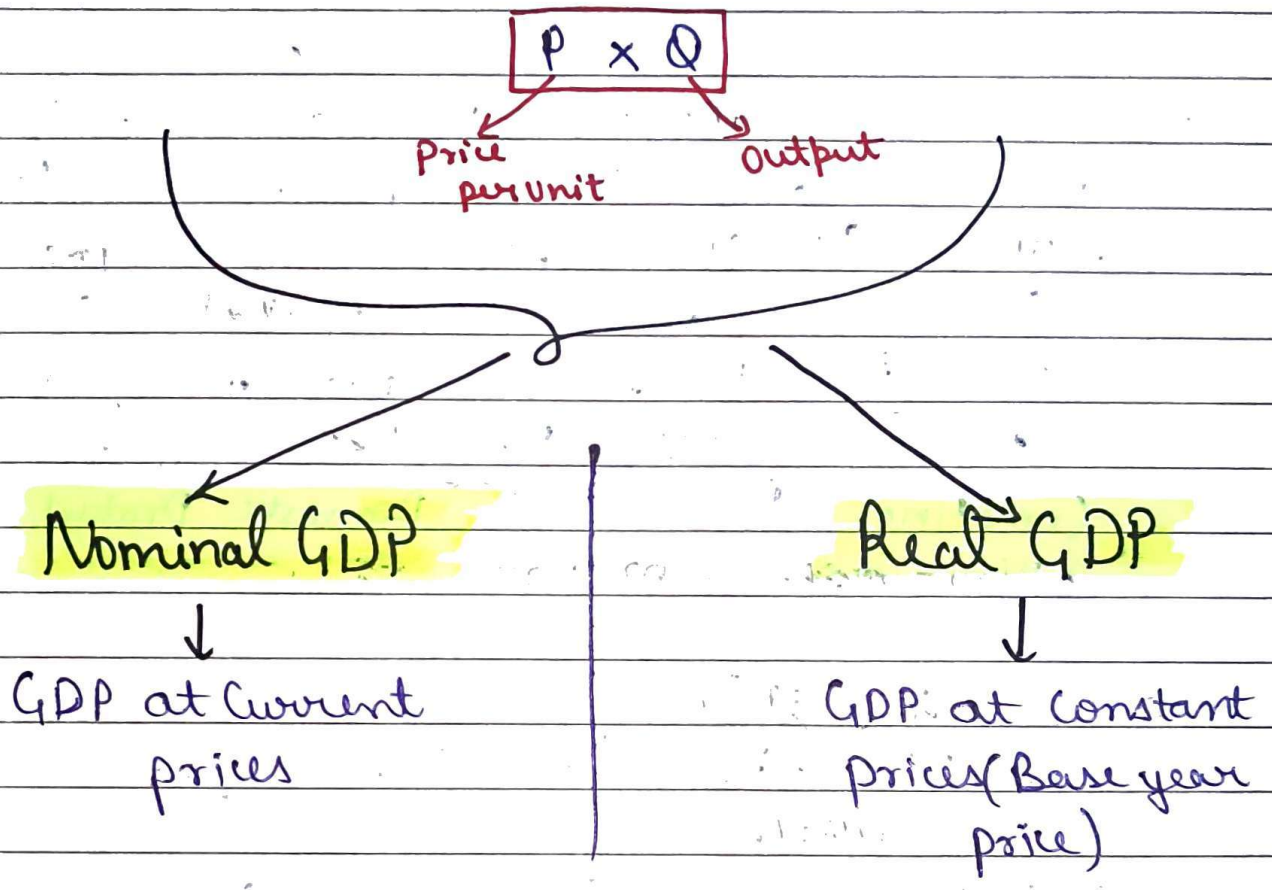 P x Q
Price
per unit
Output
Nominal GDP
GDP at Current
prices
Real GDP
GDP at Constant
prices(Base year
price)